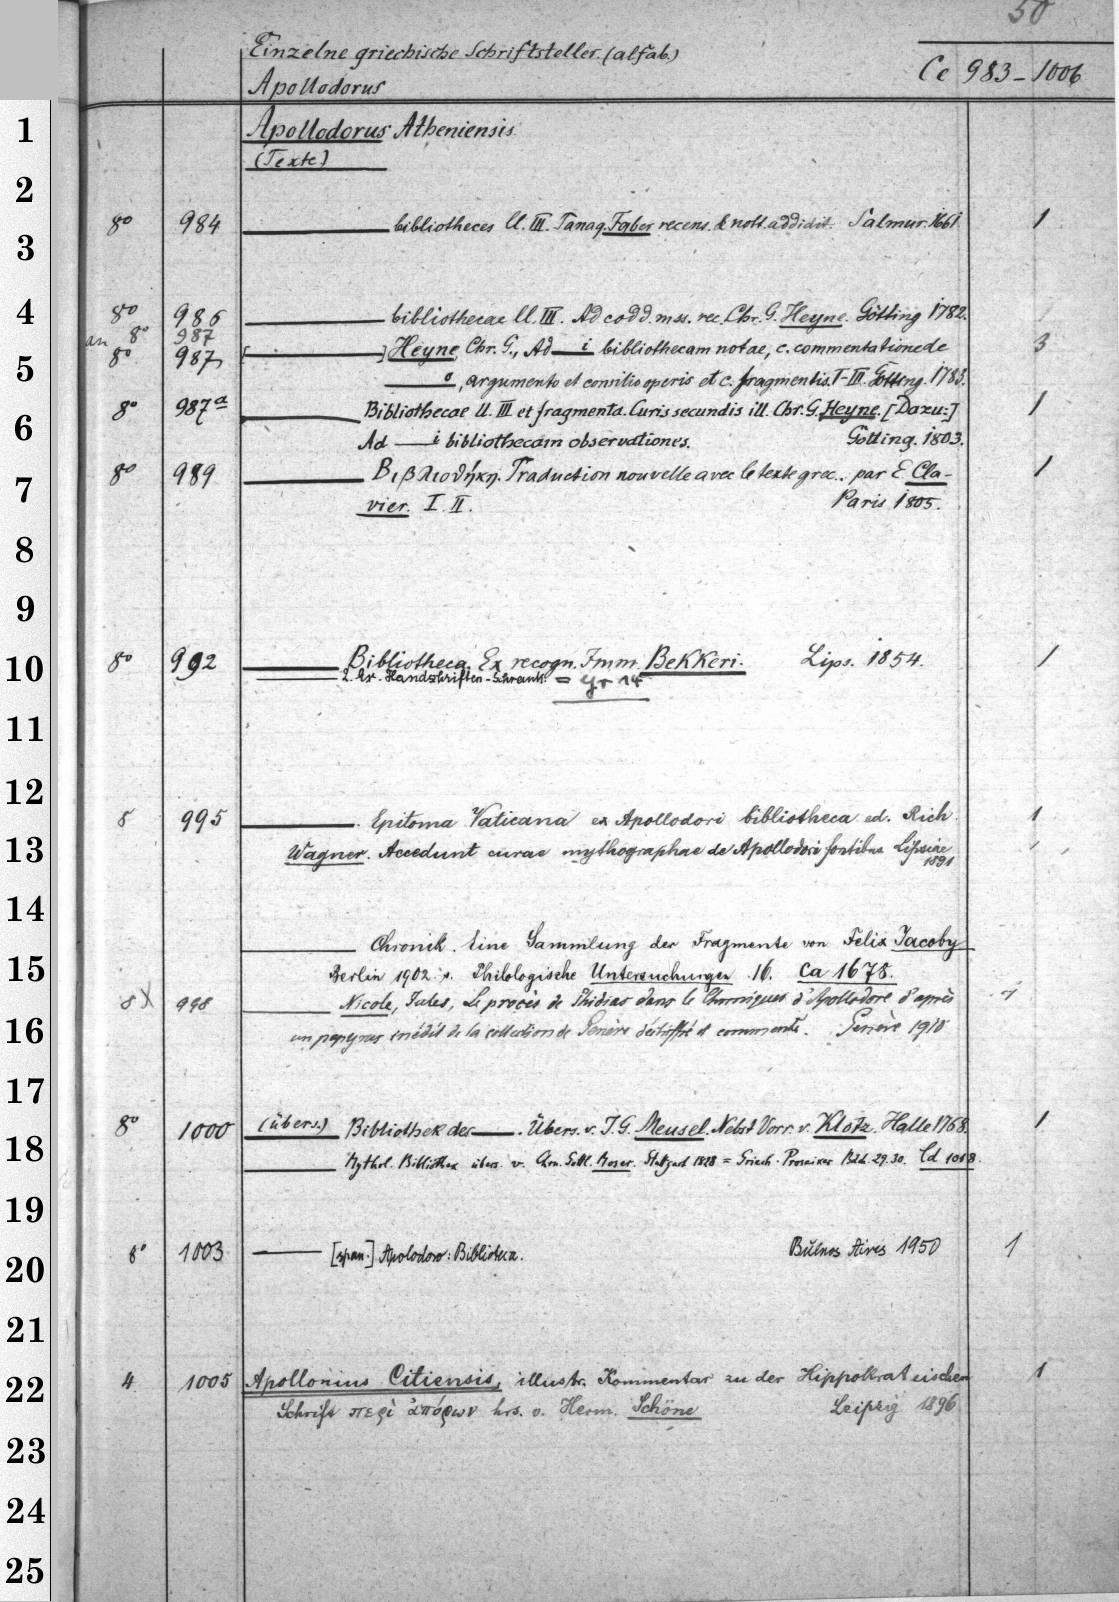 50
Einzelne griechische Schriftsteller. (alfab.)
Apollodorus
Ce 983-1006
1
Apollodorus Atheniensis
(Texte)
2
8° 984 bibliotheces ll. III. Tanaq. Faber recens. & nott. addidit. Salmur. 1661 1
3
4
8° 986 bibliothecae ll. III. Ad codd. mss. rec. Chr. G. Heyne. Götting 1782.
an 8° 987
5
8° 987 [ ] Heyne, Chr. G., Ad — i bibliothecam notae, c. commentatione de 3
— o, argumento et consilio operis et c. fragmentis. I-III. Götting. 1783.
8° 987a Bibliothecae ll. III et fragmenta. Curis secundis ill. Chr. G. Heyne. [Dazu:] 1
6
Ad — i bibliothecam observationes. Götting. 1803.
8° 989 Βιβλιοθήκη. Traduction nouvelle avec le texte grec.. par E. Cla- 1
7
vier. I. II. Paris 1805.
8
9
10
8° 992 Bibliotheca. Ex recogn. Imm. Bekkeri. Lips. 1854. 1
2. Ex. Handschriften-Schrank = gr 14
11
12
8 995 Epitoma Vaticana ex Apollodori bibliotheca ed. Rich. 1
13
Wagner. Accedunt curae mythographae de Apollodori fontibus Lipsiae
1891
14
Chronik. Eine Sammlung der Fragmente von Felix Jacoby
15
Berlin 1902. Philologische Untersuchungen 16. Ca 1678.
8 X 998 Nicole, Jules, Le procès de Phidias dans le Chroniques d'Apollodore d'après 1
16
un papyrus inédit de la collection de Genève déchiffré et commenté. Genève 1910
17
8° 1000 (übers.) Bibliothek des —. Übers. v. J. G. Meusel. Nebst Vorr. v. Klotz. Halle 1768. 1
18
Mythol. Bibliothek übers. v. Chn. Gottl. Moser. Stuttgart 1828 = Griech. Prosaiker Bdch. 29.30. Cd 1018.
19
8° 1003 [span.] Apolodoro: Biblioteca. Buenos Aires 1950 1
20
21
4 1005 Apollonius Citiensis, illustr. Kommentar zu der Hippokrateischen 1
22
Schrift περὶ ἄρθρων hrs. v. Herm. Schöne Leipzig 1896
23
24
25